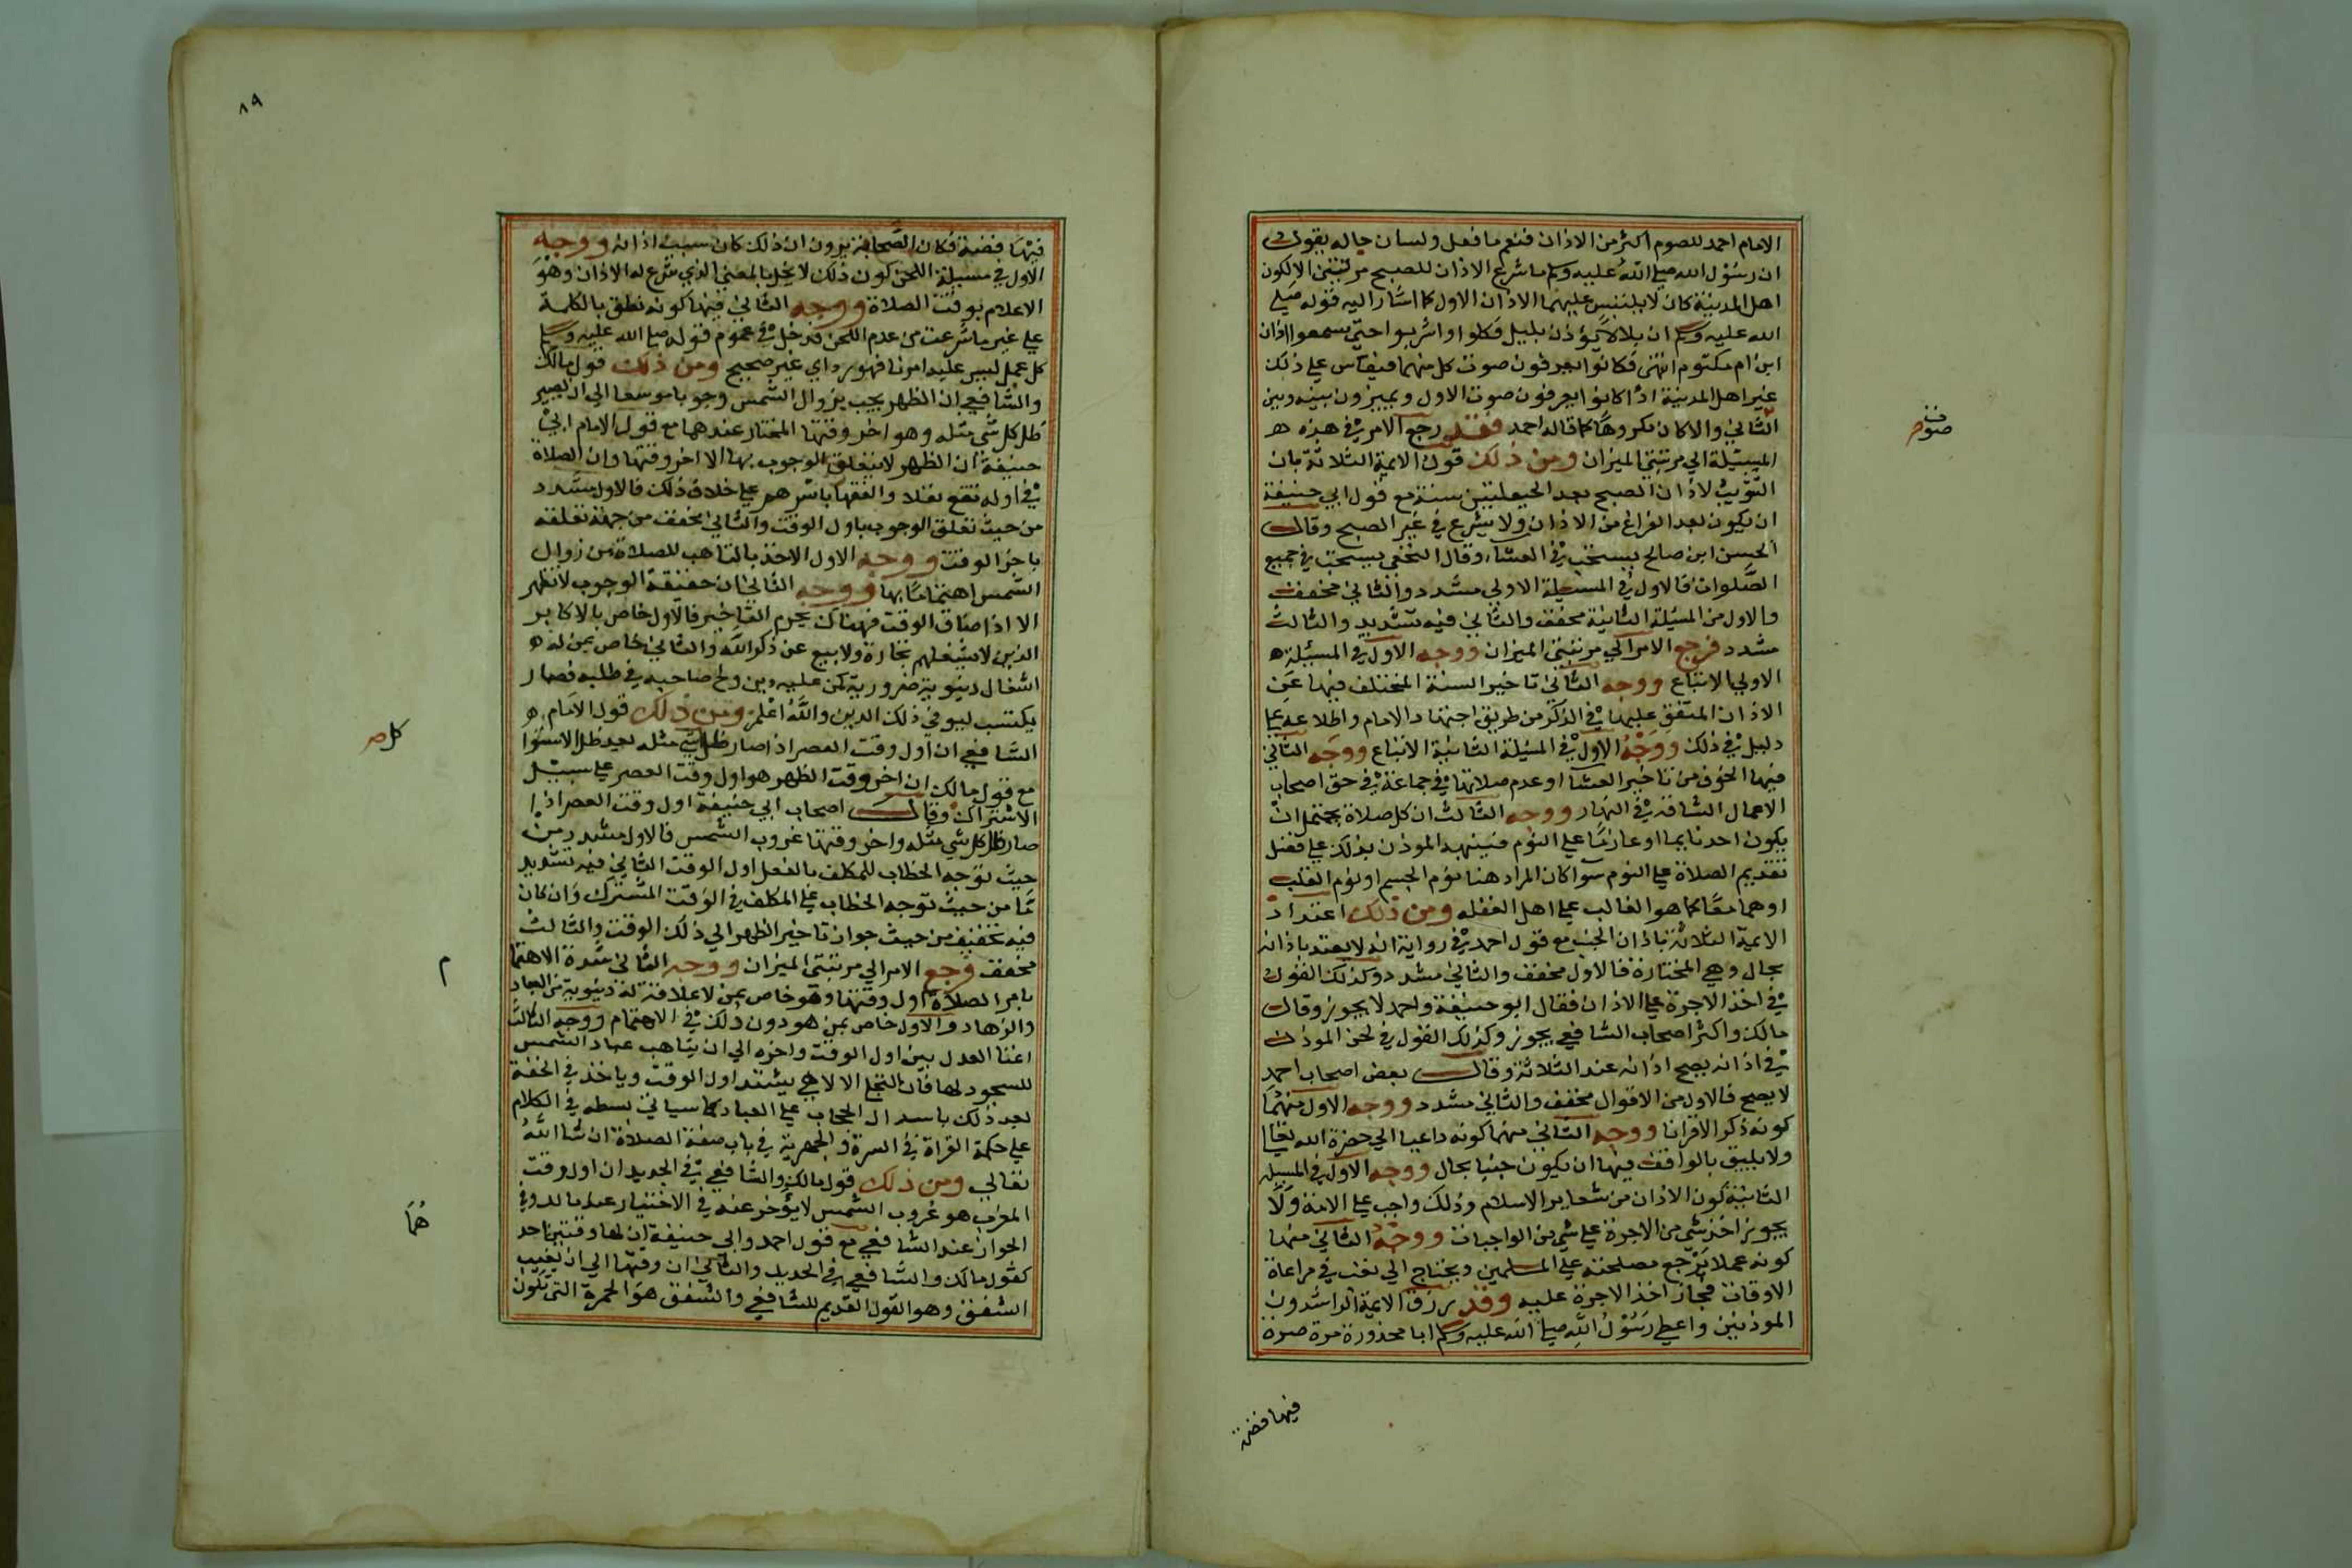 الامام احمد للصوم اكثر من الاذان فنعم ما فعل ولسان حاله يقول
ان رسول الله صلى الله عليه وسلم ما شرع الاذان للصبح مرتين الا لكون
اهل المدينة كان لا يلتبس عليهما الاذان الاول كما اشار اليه قوله صلى
الله عليه وسلم ان بلالا يؤذن بليل فكلوا واشربوا حتى يسمعوا اذان
ابن ام مكتوم انتهى فكانوا يعرفون صوت كل منهما فيقاس على ذلك
غير اهل المدينة اذا كانوا يعرفون صوت الاول ويميزون بينه وبين
الثاني والا كان مكروها كما قاله احمد فقد رجع الامر في هذه
المسئلة الى مرتبتي الميزان ومن ذلك قول الايمة الثلاثة بان
التثويب لاذان الصبح بعد الحيعلتين سنة مع قول ابي حنيفة
ان يكون بعد الفراغ من الاذان ولا يشرع في غير الصبح وقال
الحسن ابن صالح يستحب في العشاء وقال النخعي يستحب في جميع
الصلوات فالاول في المسئلة الاولى مشدد والثاني مخفف
والاول من المسئلة الثانية مخفف والثاني فيه تشديد والثالث
مشدد فرجع الامر الى مرتبتي الميزان ووجه الاول في المسئلة
الاولى الاتباع ووجه الثاني تاخير السنة المختلف فيها عن
الاذان المتفق عليها في الذكر من طريق اجتهاد الامام واطلاعه على
دليل في ذلك ووجه الاول في المسئلة الثانية الاتباع ووجه الثاني
فيها الخوف من تاخير العشا او عدم صلاتها في جماعة في حق اصحاب
الاعمال الشاقة في النهار ووجه الثالث ان كل صلاة يحتمل ان
يكون احد نايما او عازما على النوم فينبهه الموذن بذلك على فضل
تقديم الصلاة على النوم سوا كان المراد هنا نوم الجسم او نوم القلب
او هما معا كما هو الغالب على اهل الغفله ومن ذلك اعتداد
الايمة الثلاثة باذان الجنب مع قول احمد في رواية انه لا يعتد باذانه
بحال وهي المختارة فالاول مخفف والثاني مشدد وكذلك القول
في اخذ الاجرة على الاذان فقال ابو حنيفة واحمد لا يجوز وقال
مالك واكثر اصحاب الشافعي يجوز وكذلك القول في لحن الموذن
في اذانه يصح اذانه عند الثلاثة وقال بعض اصحاب احمد
لا يصح فالاول من الاقوال مخفف والثاني مشدد ووجه الاول منهما
كونه ذكر الا قرانا ووجه الثاني منهما كونه داعيا الى حضرة الله تعالى
ولا يليق بالواقف فيها ان يكون جنبا بحال ووجه الاول في المسئلة
الثانية كون الاذان من شعاير الاسلام وذلك واجب على الامة ولا
يجوز اخذ شي من الاجرة على شي من الواجبات ووجه الثاني منهما
كونه عملا يرجع مصلحته على المسلمين ويحتاج الى تعب في مراعاة
الاوقات فجاز اخذ الاجرة عليه وقد رزق الايمة الراشدون
الموذنين واعطى رسول الله صلى الله عليه وسلم ابا محذورة مرة صرة
فيها فضة
٨٩
فيها فضة فكان الصحابة يرون ان ذلك كان سبب اذانه ووجه
الاول في مسيلة اللحن كون ذلك لا يخل بالمعني الذي شرع له الاذان وهو
الاعلام بوقت الصلاة ووجه الثاني فيها كونه نطق بالكلمة
على غير ما شرعت من عدم اللحن فدخل في عموم قوله صلى الله عليه وسلم
كل عمل ليس عليه امرنا فهو رد اي غير صحيح ومن ذلك قول مالك
والشافعي ان الظهر يجب بزوال الشمس وجوبا موسعا الى ان يصير
ظل كل شي مثله وهو اخر وقتها المختار عندهما مع قول الامام ابي
حنيفة ان الظهر لا يتعلق الوجوب بها الا اخر وقتها وان الصلاة
في اوله تقع نفلا والفقها باسرهم على خلاف ذلك فالاول مشدد
من حيث تعلق الوجوب باول الوقت والثاني مخفف من جهة تعلقه
باخر الوقت ووجه الاول الاخذ بالتاهب للصلاة من زوال
الشمس اهتماما بها ووجه الثاني ان حقيقة الوجوب لا تظهر
الا اذا ضاق الوقت فهناك يحرم التاخير فالاول خاص بالاكابر
الذين لا يشغلهم تجارة ولا بيع عن ذكر الله والثاني خاص بمن له
اشغال دنيوية ضرورية كمن عليه دين ولح صاحبه في طلبه فصار
يكتسب ليوفي ذلك الدين والله اعلم ومن ذلك قول الامام
الشافعي ان اول وقت العصر اذا صار ظل شي مثله بعد ظل الاستوا
كل صح
مع قول مالك ان اخر وقت الظهر هو اول وقت العصر على سبيل
الاشتراك وقال اصحاب ابي حنيفة اول وقت العصر اذا
صار ظل كل شي مثله واخر وقتها غروب الشمس فالاول مشدد من
حيث توجه الخطاب للمكلف بالفعل اول الوقت الثاني فيه تشديد
ما من حيث توجه الخطاب على المكلف في الوقت المشترك وان كان
فيه تخفيف من حيث جواز تاخير الظهر الى ذلك الوقت والثالث
مخفف فرجع الامر الى مرتبتي الميزان ووجه الثاني شدة الاهتما
م
بامر الصلاة اول وقتها وهو خاص بمن لا علاقة له دنيوية من العباد
والزهاد والاول خاص بمن هو دون ذلك في الاهتمام ووجه الثالث
اعنا العدل بين اول الوقت واخره الى ان يتاهب عباد الشمس
للسجود لها فان التجلي الالاهي يشتد اول الوقت وياخذ في الخفة
بعد ذلك باسدال الحجاب على العباد كما سياتي بسطه في الكلام
على حكمة القراة في السرة والجهرية في باب صفة الصلاة ان شا الله
تعالى ومن ذلك قول مالك والشافعي في الجديد ان اول وقت
المغرب هو غروب الشمس لا يؤخر عنه في الاختيار عند مالك وفي
الجواز عند الشافعي مع قول احمد وابي حنيفة ان لها وقتين احد
هما
كقول مالك والشافعي في الجديد والثاني ان وقتها الى ان يغيب
الشفق وهو القول القديم للشافعي والشفق هو الحمرة التي تكون